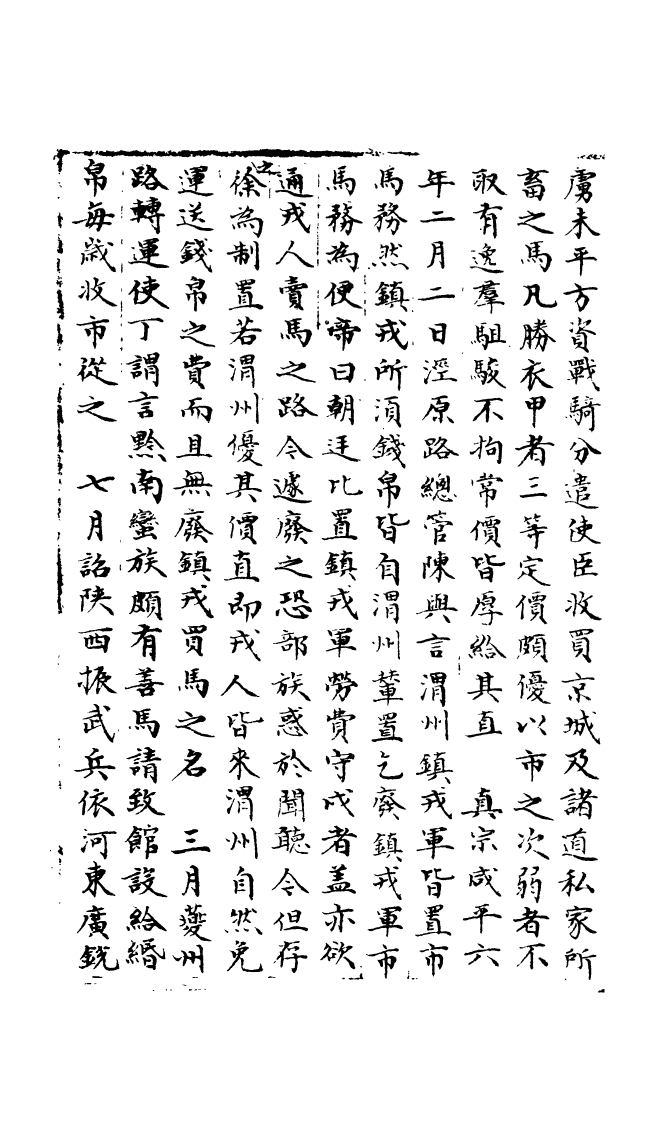 虜未平方資戰騎分遣使臣收買京城及諸道私家所
畜之馬凡勝衣甲者三等定價頗優以市之次弱者不
取有逸羣駔駿不拘常價皆厚給其直　真宗咸平六
年二月二日涇原路總管陳興言渭州鎮戎軍皆置市
馬務然鎮戎所須錢帛皆自渭州輦置乞廢鎮戎軍市
馬務為便帝曰朝廷比置鎮戎軍勞費守戍者蓋亦欲
通戎人賣馬之路今遽廢之恐部族惑於聞聽令但存
之徐為制置若渭州優其價直即戎人皆來渭州自然免
運送錢帛之費而且無廢鎮戎買馬之名　三月夔州
路轉運使丁謂言黔南蠻族頗有善馬請致館設給緡
帛每歲收市從之　七月詔陝西振武兵依河東廣銳